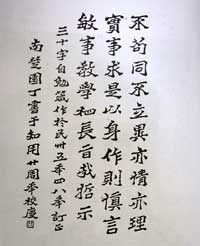 不苟同不立異亦情亦理
實事求是以身作則慎言
敏事教學相長旨哉哲示
三十字自勉箴作於民卅五年四八年訂正
尚楚園丁書于知用廿周年校慶